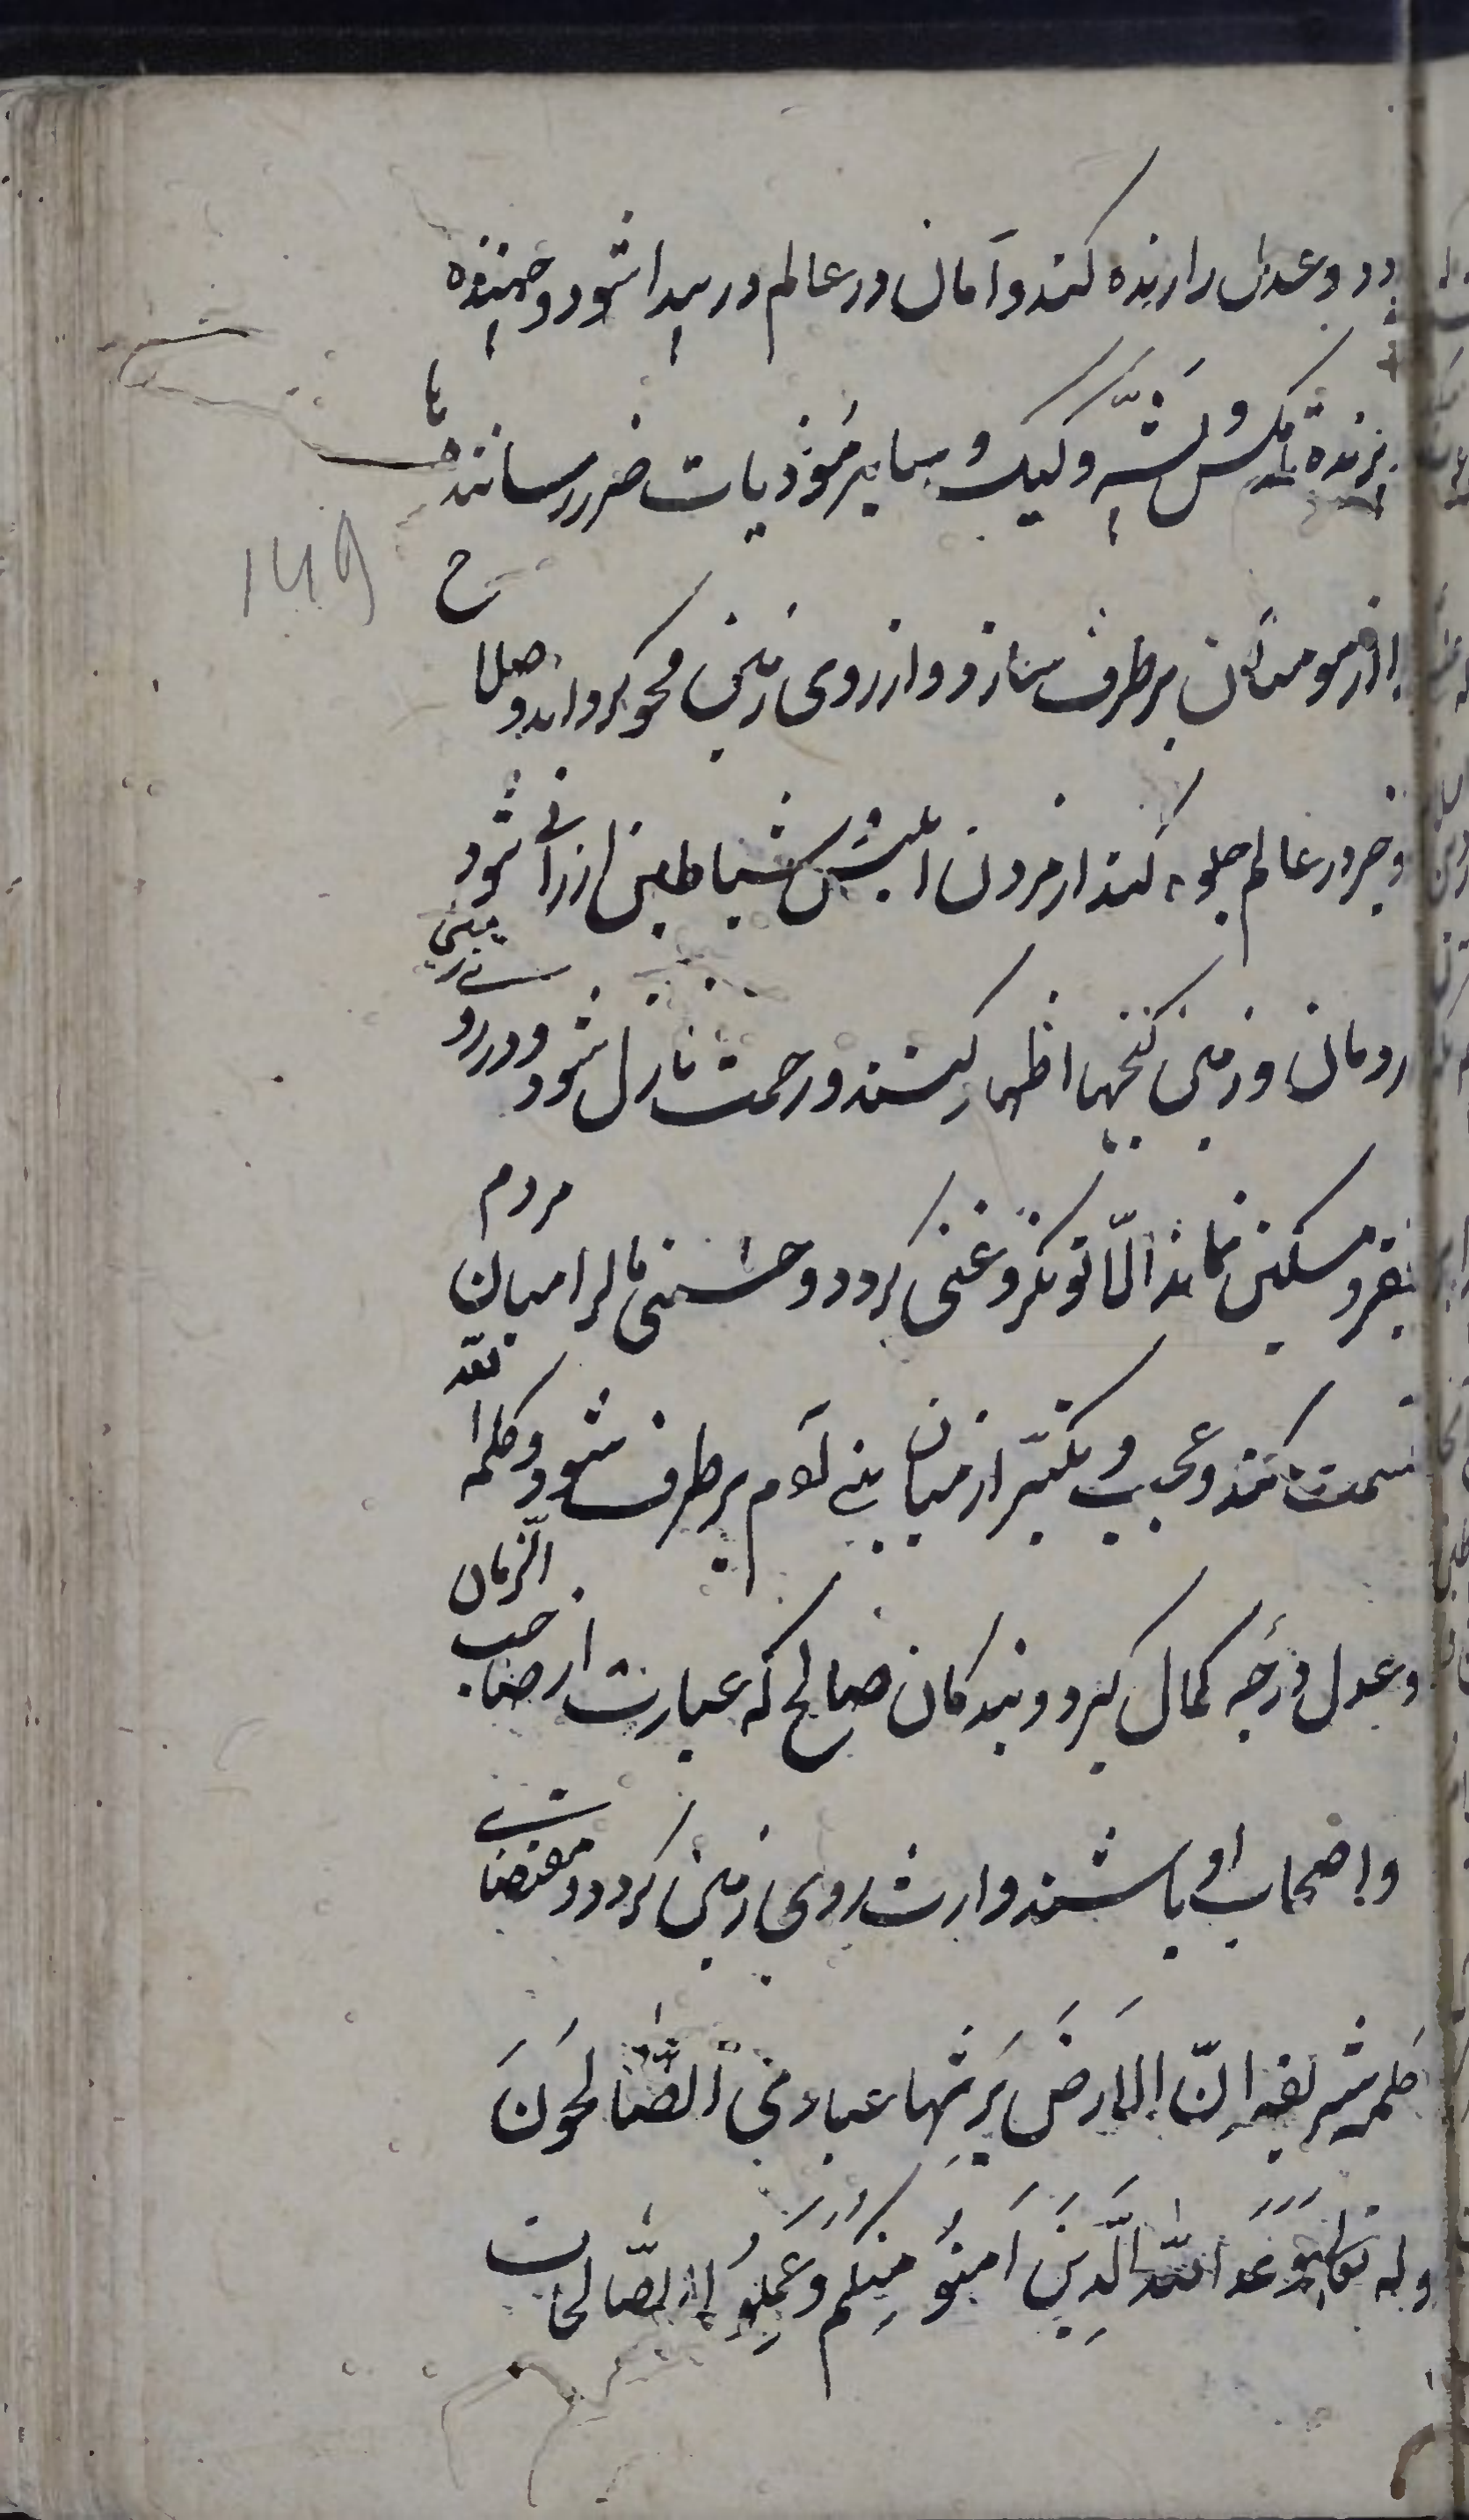 دد وعدل را زنده کند وآمان در عالم در پیدا شود و جهنده
پرنده مکس و پشّه وکیک و سایر مُوذیات ضرر رسانند ها
۱۴۹
را از مومنان برطرف سازد و از روی زمین محو کرداند و صلاح
و خیر در عالم جلوه کند از مردن ابلیس و شیاطین ارزانی شود
رومان وزمین کنجها اظهار کنند و رحمت نازل شود و در روی زمینی
فقیر و مسکین نماند الّا توانکر و غنی کردد و حشنی مال را میان مردم
قسمت کند وعجب و تکبّر از میان بنی آدم برطرف شود و کلمه الله
وعدل درجه کمال کیرد و بندکان صالح که عبارت از صاحب الزّمان
واصحاب او باشند وارث روی زمین کردد مقتضای
کلمه شریفه اِنّ الارضَ یَرِثُها عبادی الصّالحُونَ
وله تعالی وَعَدَ اللهُ الَّذینَ آمنُو مِنکم وَعَمِلُو الصّالحات